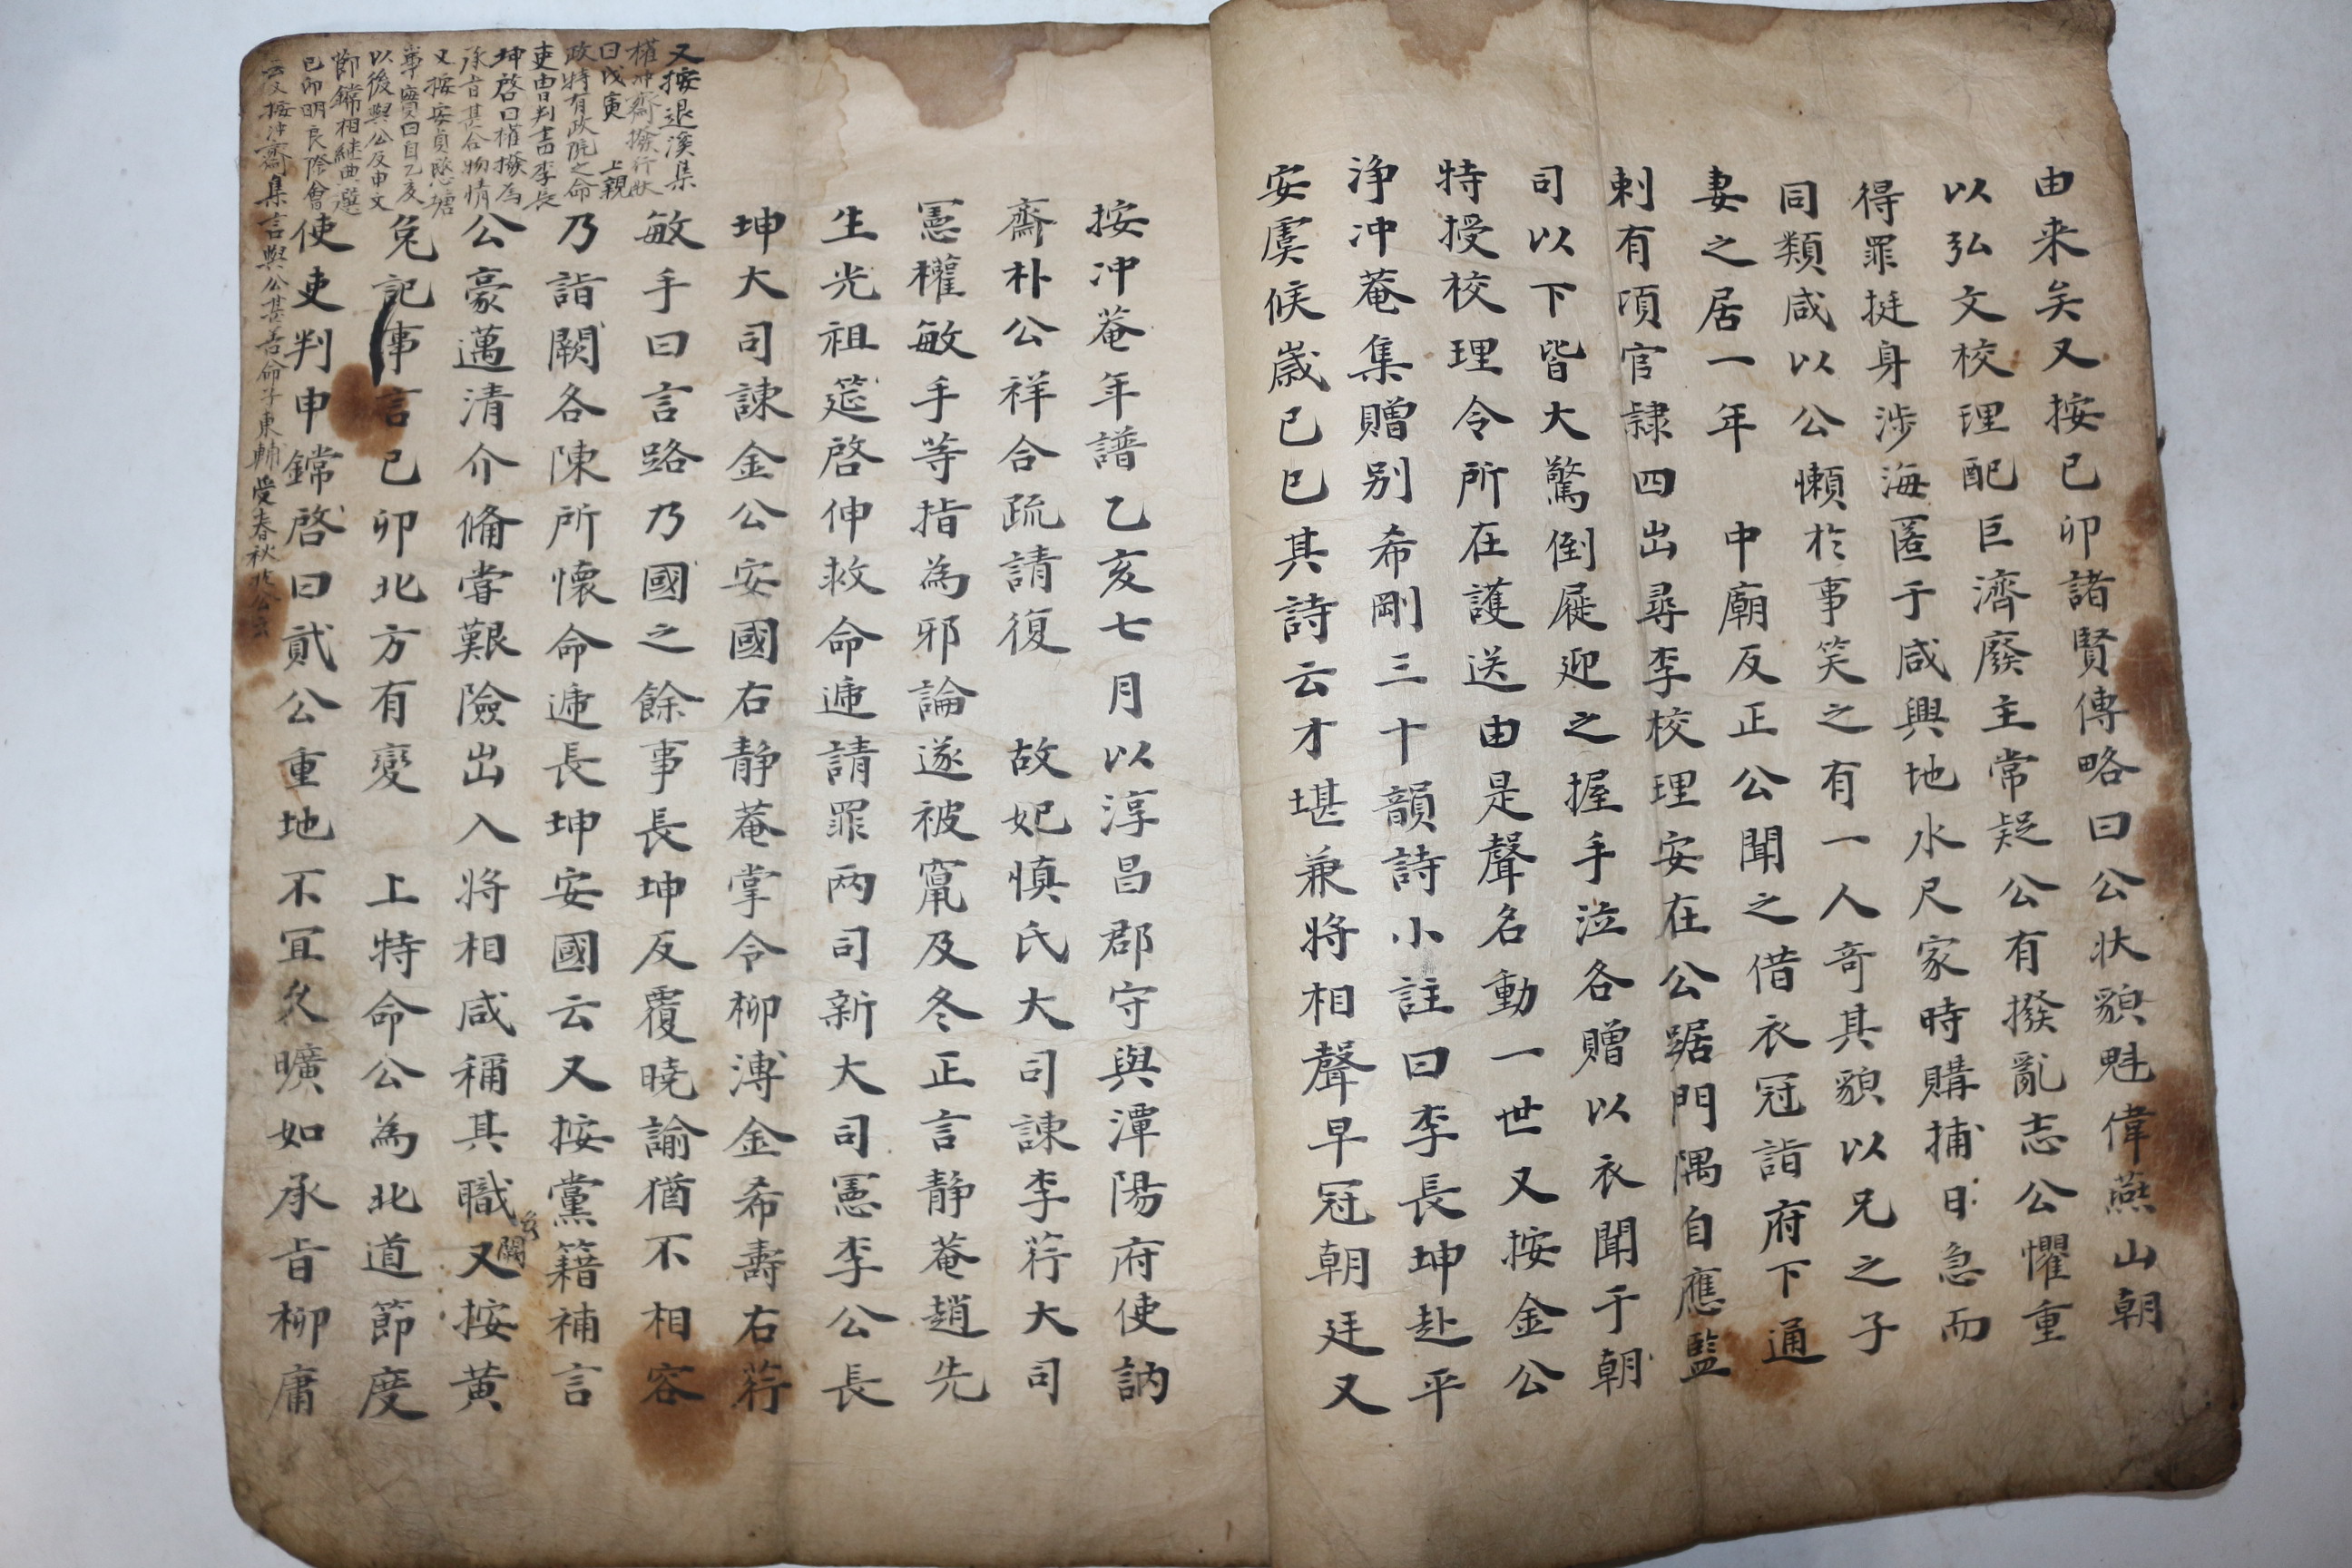 由来矣又按己卯諸賢傳略曰公狀貌魁偉燕山朝
以弘文校理配巨濟廢主常疑公有撥亂志公懼重
得罪挺身涉海匿于咸興地水尺家時購捕日急而
同類咸以公懶於事笑之有一人奇其貌以兄之子
妻之居一年 中廟反正公聞之借衣冠詣府下通
刺有頃官隷四出尋李校理安在公踞門隅自應監
司以下皆大驚倒屣迎之握手泣各贈以衣聞于朝
特授校理令所在護送由是聲名動一世又按金公
淨冲菴集贈别希剛三十韻詩小註曰李長坤赴平
安虞候歲己巳其詩云才堪兼將相聲早冠朝廷又
按冲菴年譜乙亥七月以淳昌郡守與潭陽府使訥
齋朴公祥合疏請復 故妃愼氏大司諫李荇大司
憲權敏手等指為邪論遂被竄及冬正言静菴趙先
生光祖筵啓伸救命遞請罪两司新大司憲李公長
坤大司諫金公安國右静菴掌令柳溥金希壽右荇
敏手曰言路乃國之餘事長坤反覆曉諭猶不相容
乃詣闕各陳所懷命遞長坤安國云又按黨籍補言
公豪邁清介備嘗艱險出入將相咸稱其職又按黄
兔記事言己卯北方有變 上特命公為北道節度
使吏判申鏛啓曰貳公重地不冝久曠如承旨柳庸
又按退溪集
權冲齋撥行狀
曰戊寅 上親
政特有政院之命
吏曹判書李長
坤啓曰權撥為
承旨甚合物情
又按安貞愍塘
事實曰自乙亥
以後與公及申文
節鏛相継典選
己卯明良際會
云又按冲齋集言與公甚善命子東輔受春秋於公云
闕